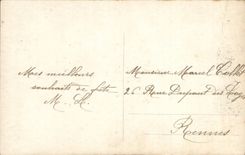 Mes meilleurs
souhaits de fête
M. L.
Monsieur Marcel
26 Rue Dupont des
Rennes